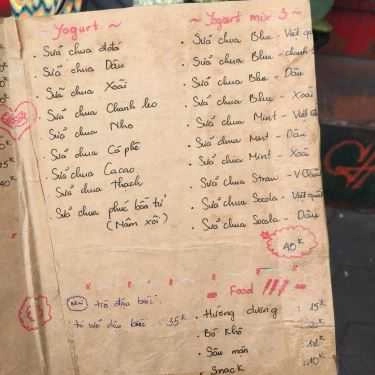 ~ Yogurt ~
. Sửa chua dứa
. Sửa chua Dâu
. Sửa chua Xoài
. Sửa chua Chanh leo
. Sửa chua Nho
. Sửa chua Cà phê
. Sửa chua Cacao
. Sửa chua thạch
. Sửa chua phúc bồn tử
(Mâm xôi)
~ Ygort mix 3 ~
. Sửa chua Blue - Việt quất
. Sửa chua Blue - chanh
. Sửa chua Blue - Dâu
. Sửa chua Blue - Xoài
. Sửa chua Mint - Việt
. Sửa chua Mint - Dâu
. Sửa chua Mint - Xoài
. Sửa chua Straw -
. Sửa chua Socola - Việt quất
. Sửa chua Socola - Dâu
40K
New trà dâu
35K
Food !!!
. Hướng dương : 15K
. Bò khô
. Sâu
. Snack : 10K